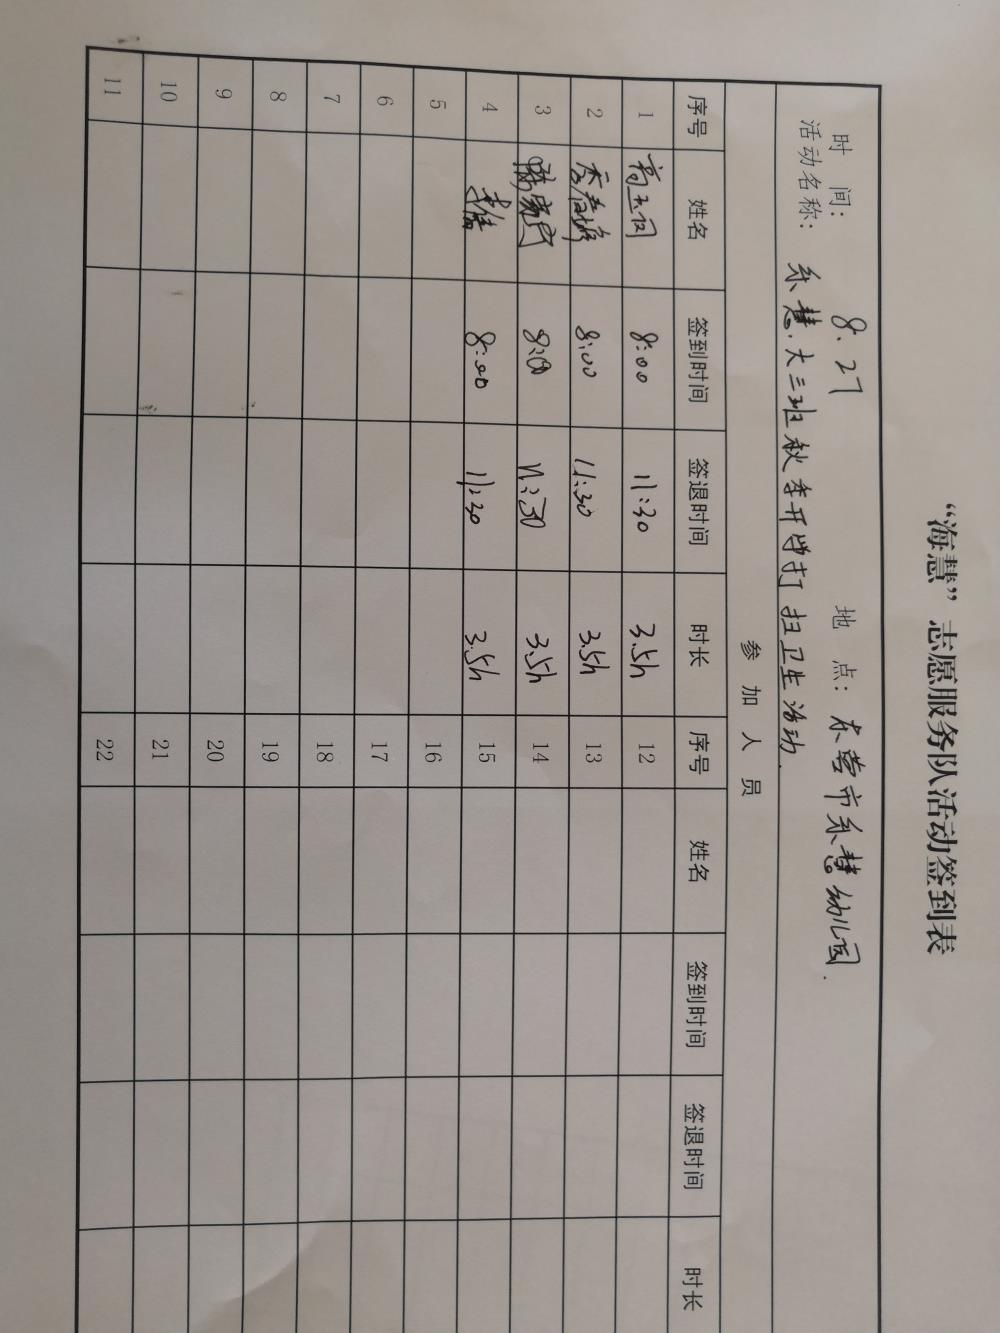 “海慧”志愿服务队活动签到表
时 间： 8.27 地 点： 东营市乐慧幼儿园.
活动名称： 乐慧.大三班秋季开学打扫卫生活动.
参 加 人 员
序号 姓名 签到时间 签退时间 时长 序号 姓名 签到时间 签退时间 时长
1 8:00 11:30 3.5h 12
2 8:00 11:30 3.5h 13
3 8:00 11:30 3.5h 14
4 8:00 11:30 3.5h 15
5 16
6 17
7 18
8 19
9 20
10 21
11 22